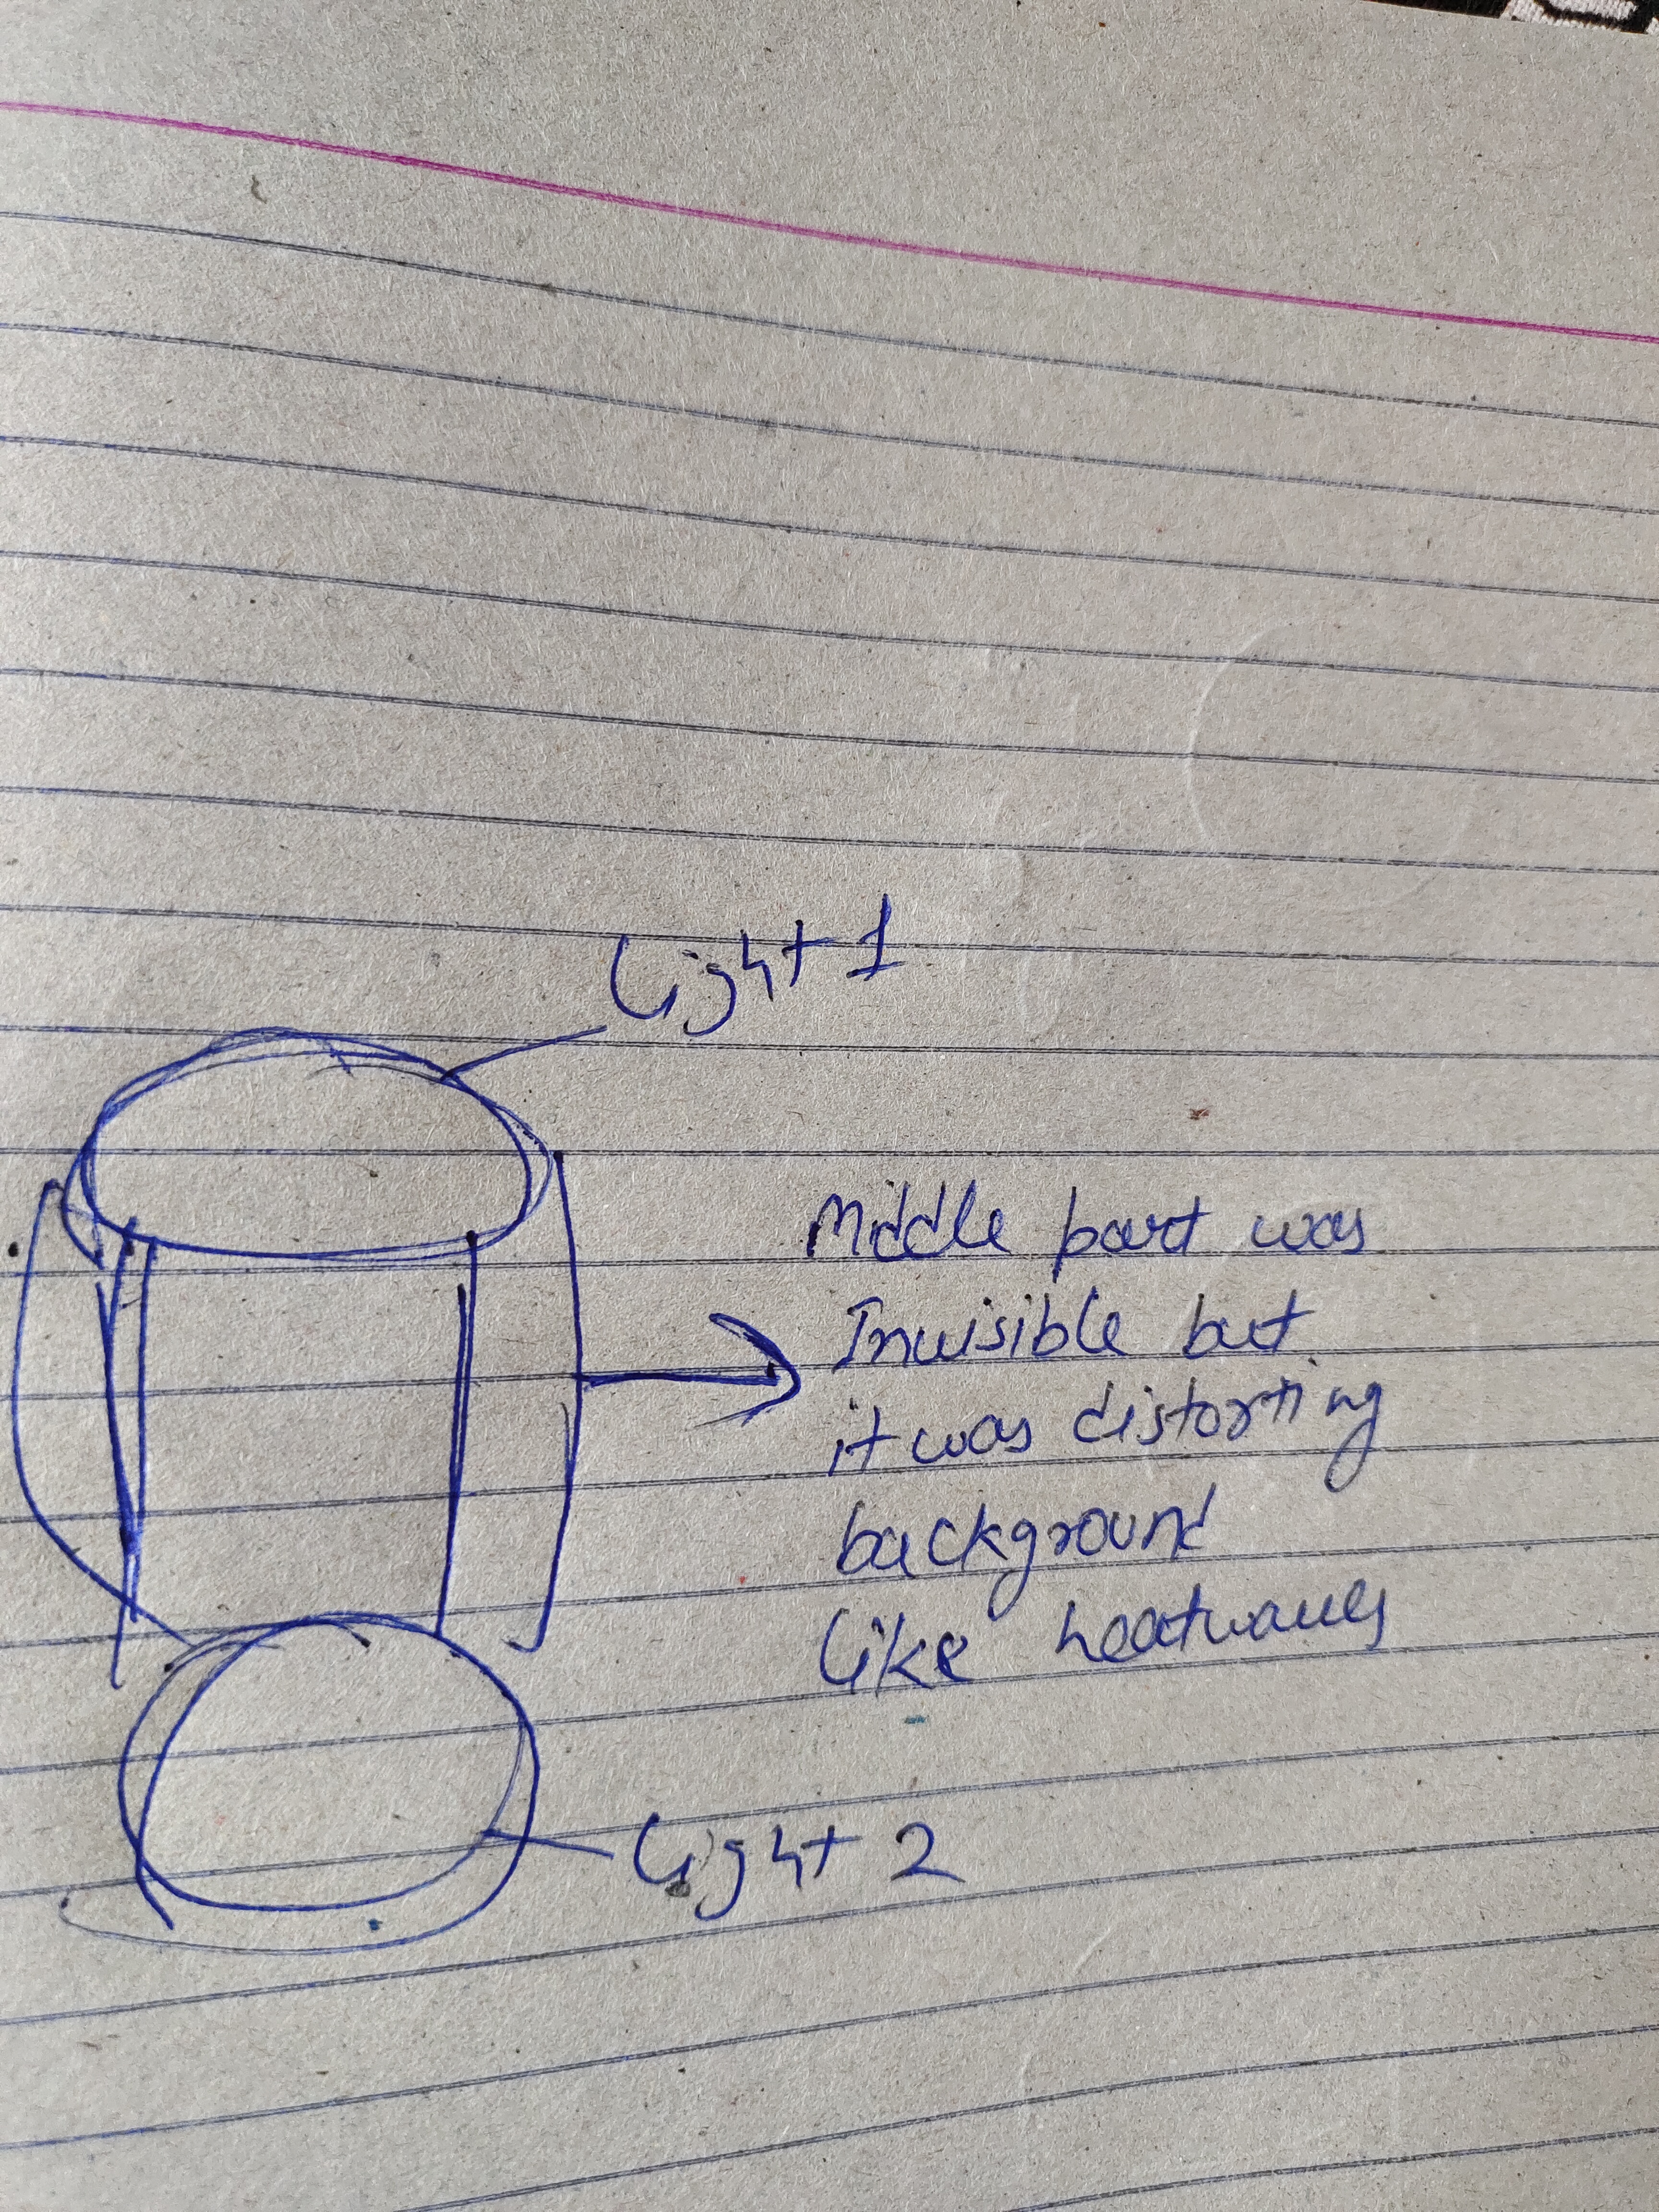 Light 1
Middle part was
Invisible but
it was distorting
background
like heatwaves
Light 2